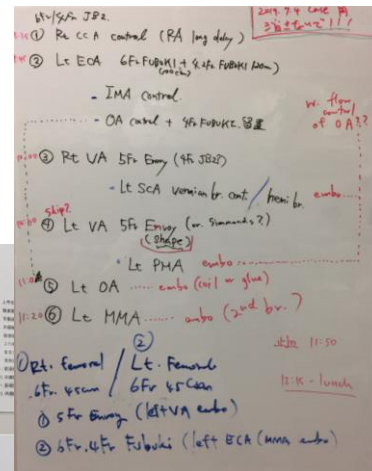 6Fr/4Fr JB2.
2019. 7. 4 case
① Rt CCA control (RA long delay)
② Lt ECA 6Fr FUBUKI + 4.2Fr FUBUKI
- IMA control.
- OA control + 4Fr FUBUKI 留置
w. flow
control
of OA??
10:00 ③ Rt VA 5Fr Envoy (4Fr JB2)
- Lt SCA vermian br. cont / hemi br. embo
skip?
④ Lt VA 5Fr Envoy (or. Simmonds?)
(Shape)
- Lt PMA embo
⑤ Lt OA embo (coil or glue)
11:20 ⑥ Lt MMA embo (2nd br.)
11:50
① Rt. femoral / ② Lt. Femoral
6Fr 45cm 6Fr 45cm
① 5Fr Envoy (left VA embo)
② 6Fr. 4Fr Fubuki (left ECA (MMA embo)
- lunch